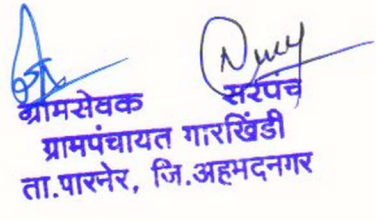 ग्रामसेवक सरपंच
ग्रामपंचायत गारखिंडी
ता.पारनेर, जि.अहमदनगर